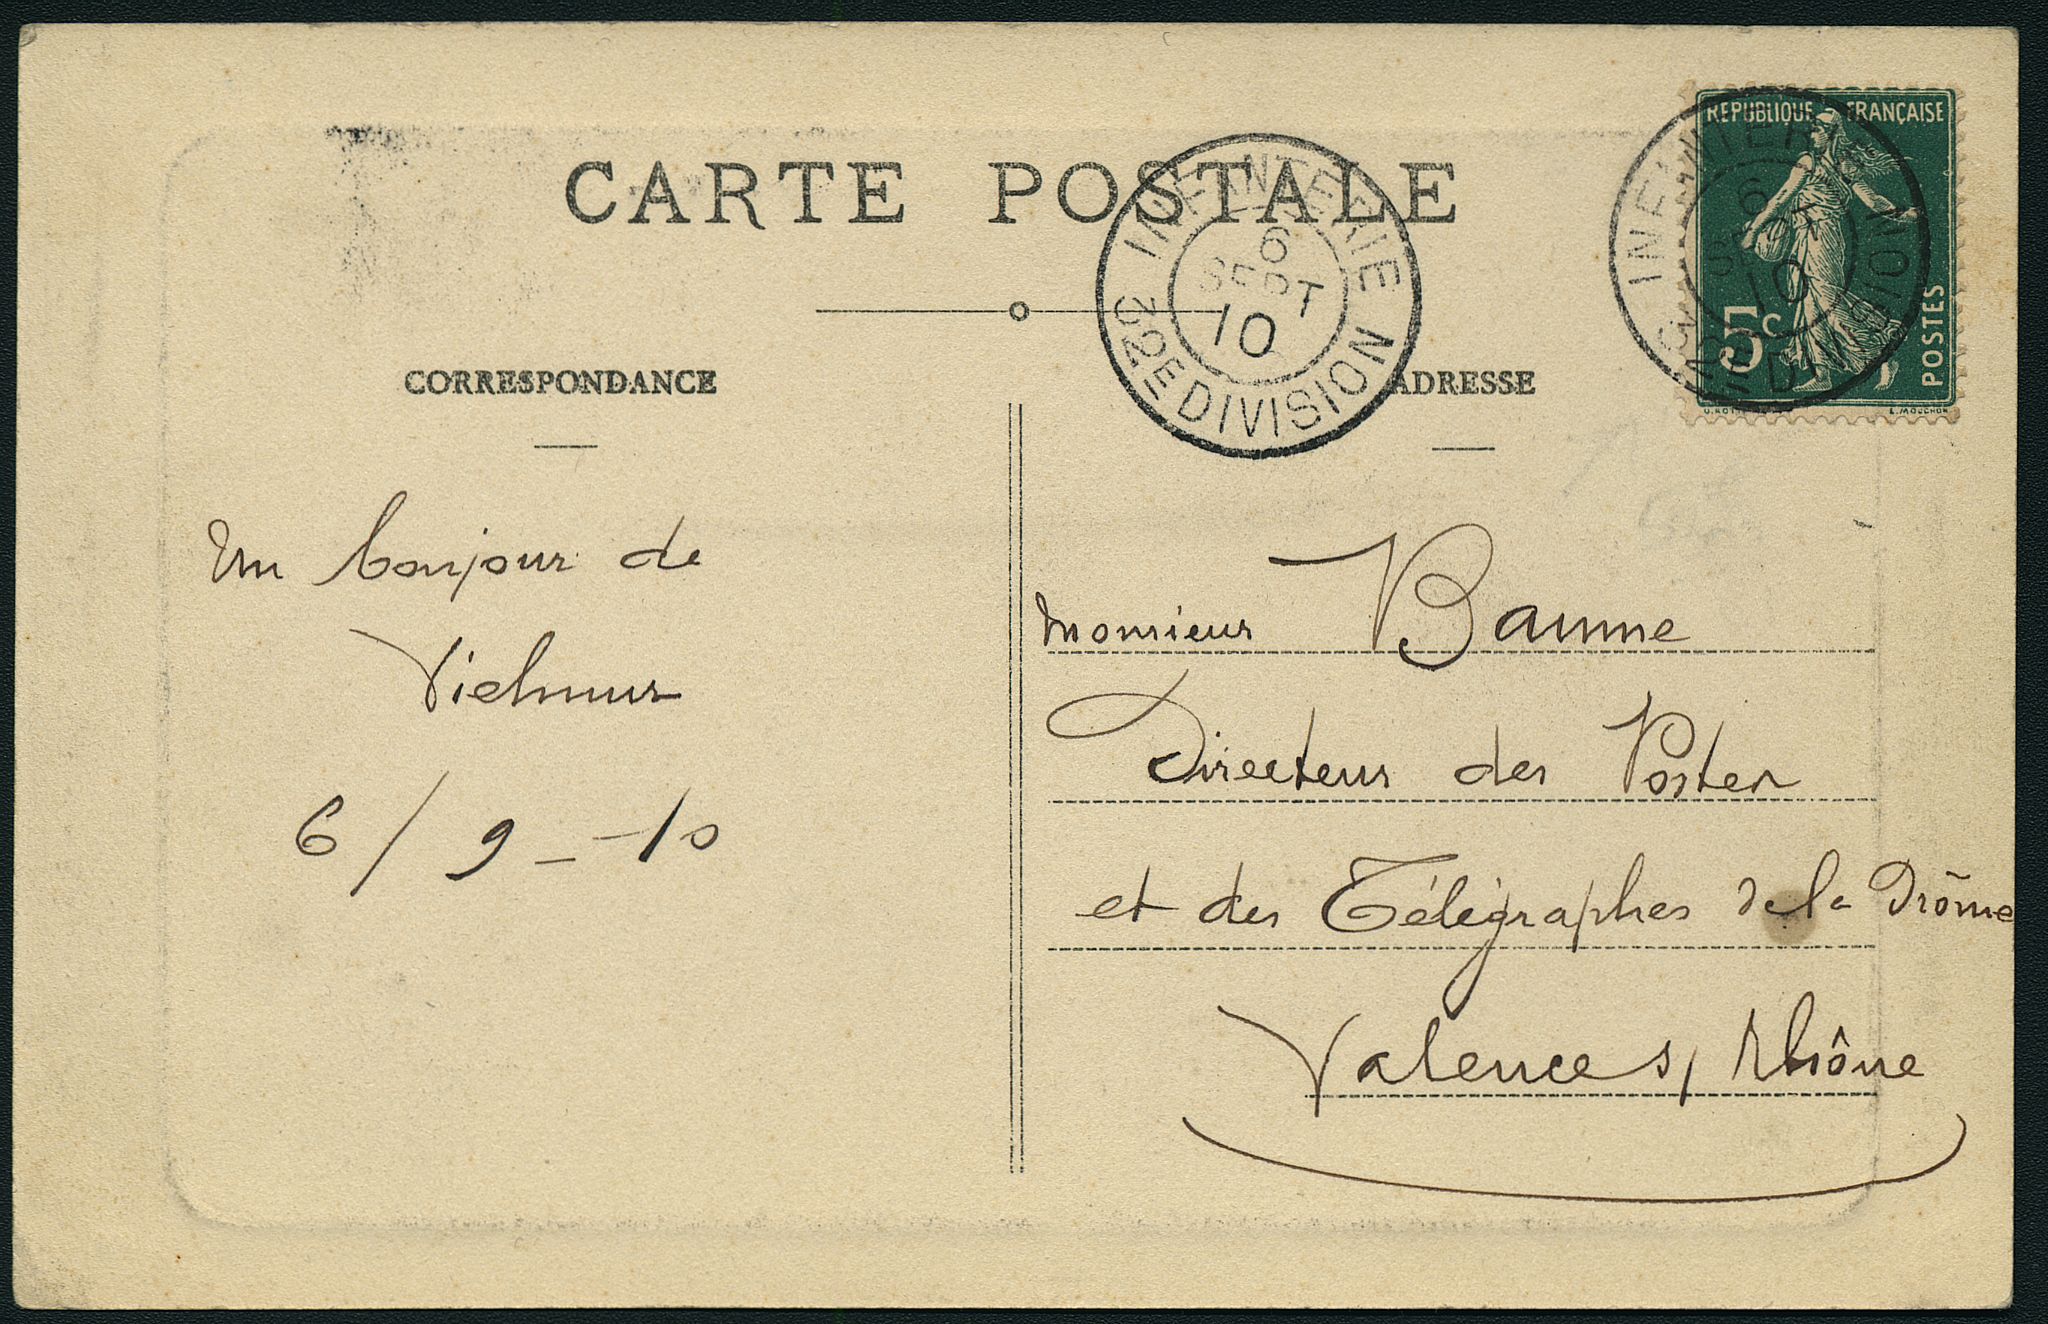 CARTE POSTALE
INFANTERIE
6
SEPT
10
32E DIVISION
REPUBLIQUE FRANÇAISE
INFANTERIE
6
SEPT
10
32E DIVISION
5c
POSTES
L. MOUCHON
CORRESPONDANCE
ADRESSE
Un bonjour de
Vielmur
6/9 - 10
Monsieur Baume
Directeur des Postes
et des Télégraphes de la Drôme
Valence s/ Rhône